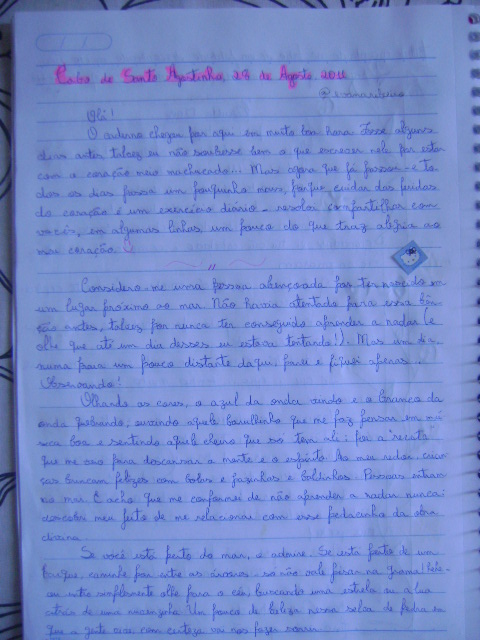 Cabo de Santo Agostinho, 28 de Agosto 2011
Olá!
O caderno chegou por aqui em muito boa hora. Fosse alguns
dias antes, talvez eu não soubesse bem o que escrever nele por estar
com o coração meio machucado... Mas agora que já passou - e to
dos os dias passa um pouquinho mais, porque cuidar das feridas
do coração é um exercício diário - resolvi compartilhar com
vocês, em algumas linhas um pouco do que traz alegria ao
meu coração.
Considero-me uma pessoa abençoada por ter nascido em
um lugar próximo ao mar. Não havia atentado para essa bên
ção antes, talvez por nunca ter conseguido aprender a nadar (e
olhe que até um dia desses eu estava tentando!). Mas um dia
numa praia um pouco distante daqui, parei e fiquei apenas...
Observando!
Olhando as cores, o azul da onda vindo e o branco da
onda quebrando, ouvindo aquele barulhinho que me faz pensar em mú
sica boa e sentindo aquele cheiro que só tem ali: foi a receita
que me deu para descansar a mente e o espírito. Ao meu redor, crian
ças brincam felizes com bolas e e baldinhos. Pessoas entram
no mar. E acho que me conformei de não aprender a nadar nunca:
descobri meu jeito de me relacionar com esse pedacinho da obra
divina.
Se você está perto do mar, o admire. Se está perto de um
parque, caminhe por entre as árvores - só não vale pisar na grama!
ou então simplesmente olhe para o céu, buscando uma estrela ou a lua
atrás de uma nuvenzinha. Um pouco de beleza nessa selva de pedra em
que a gente vive com certeza vai nos fazer